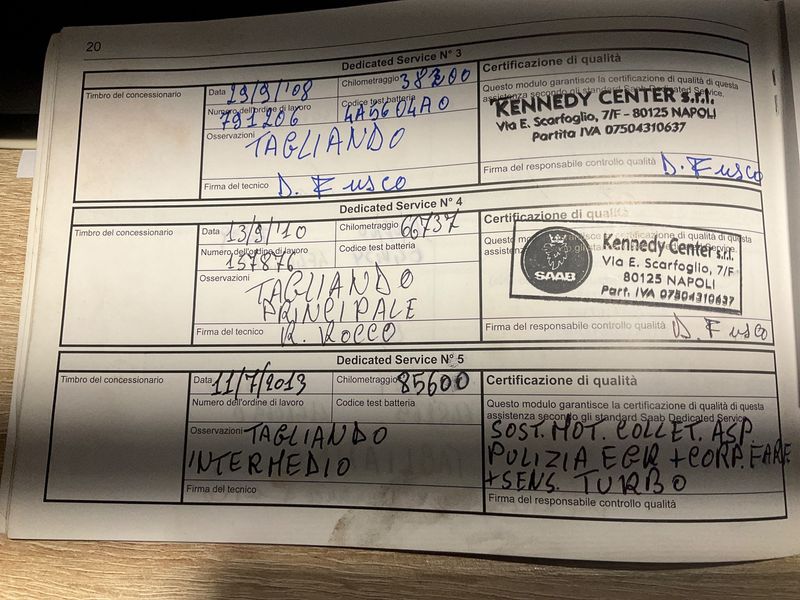 20
Dedicated Service N° 3
Timbro del concessionario
Data 19/9/'08
Chilometraggio 38200
Numero dell'ordine di lavoro 791206
Codice test batteria 4A5604A0
Osservazioni TAGLIANDO
Firma del tecnico D. Fusco
Certificazione di qualità
Questo modulo garantisce la certificazione di qualità di questa
assistenza secondo gli standard Saab Dedicated Service.
KENNEDY CENTER s.r.l.
Via E. Scarfoglio, 7/F - 80125 NAPOLI
Partita IVA 07504310637
Firma del responsabile controllo qualità D. Fusco
Dedicated Service N° 4
Timbro del concessionario
Data 13/9/'10
Chilometraggio 66737
Numero dell'ordine di lavoro 157876
Codice test batteria
Osservazioni TAGLIANDO
PRINCIPALE
Firma del tecnico R. ROCCO
Certificazione di qualità
Questo modulo garantisce la certificazione di qualità di questa
SAAB
Kennedy Center s.r.l.
Via E. Scarfoglio, 7/F
80125 NAPOLI
Part. IVA 07504310637
Firma del responsabile controllo qualità D. Fusco
Dedicated Service N° 5
Timbro del concessionario
Data 11/7/2013
Chilometraggio 85600
Numero dell'ordine di lavoro
Codice test batteria
Osservazioni TAGLIANDO
INTERMEDIO
Firma del tecnico
Certificazione di qualità
Questo modulo garantisce la certificazione di qualità di questa
assistenza secondo gli standard Saab Dedicated Service.
SOST. MOT. COLLET. ASP.
PULIZIA EGR + CORP. FARF.
+ SENS. TURBO
Firma del responsabile controllo qualità